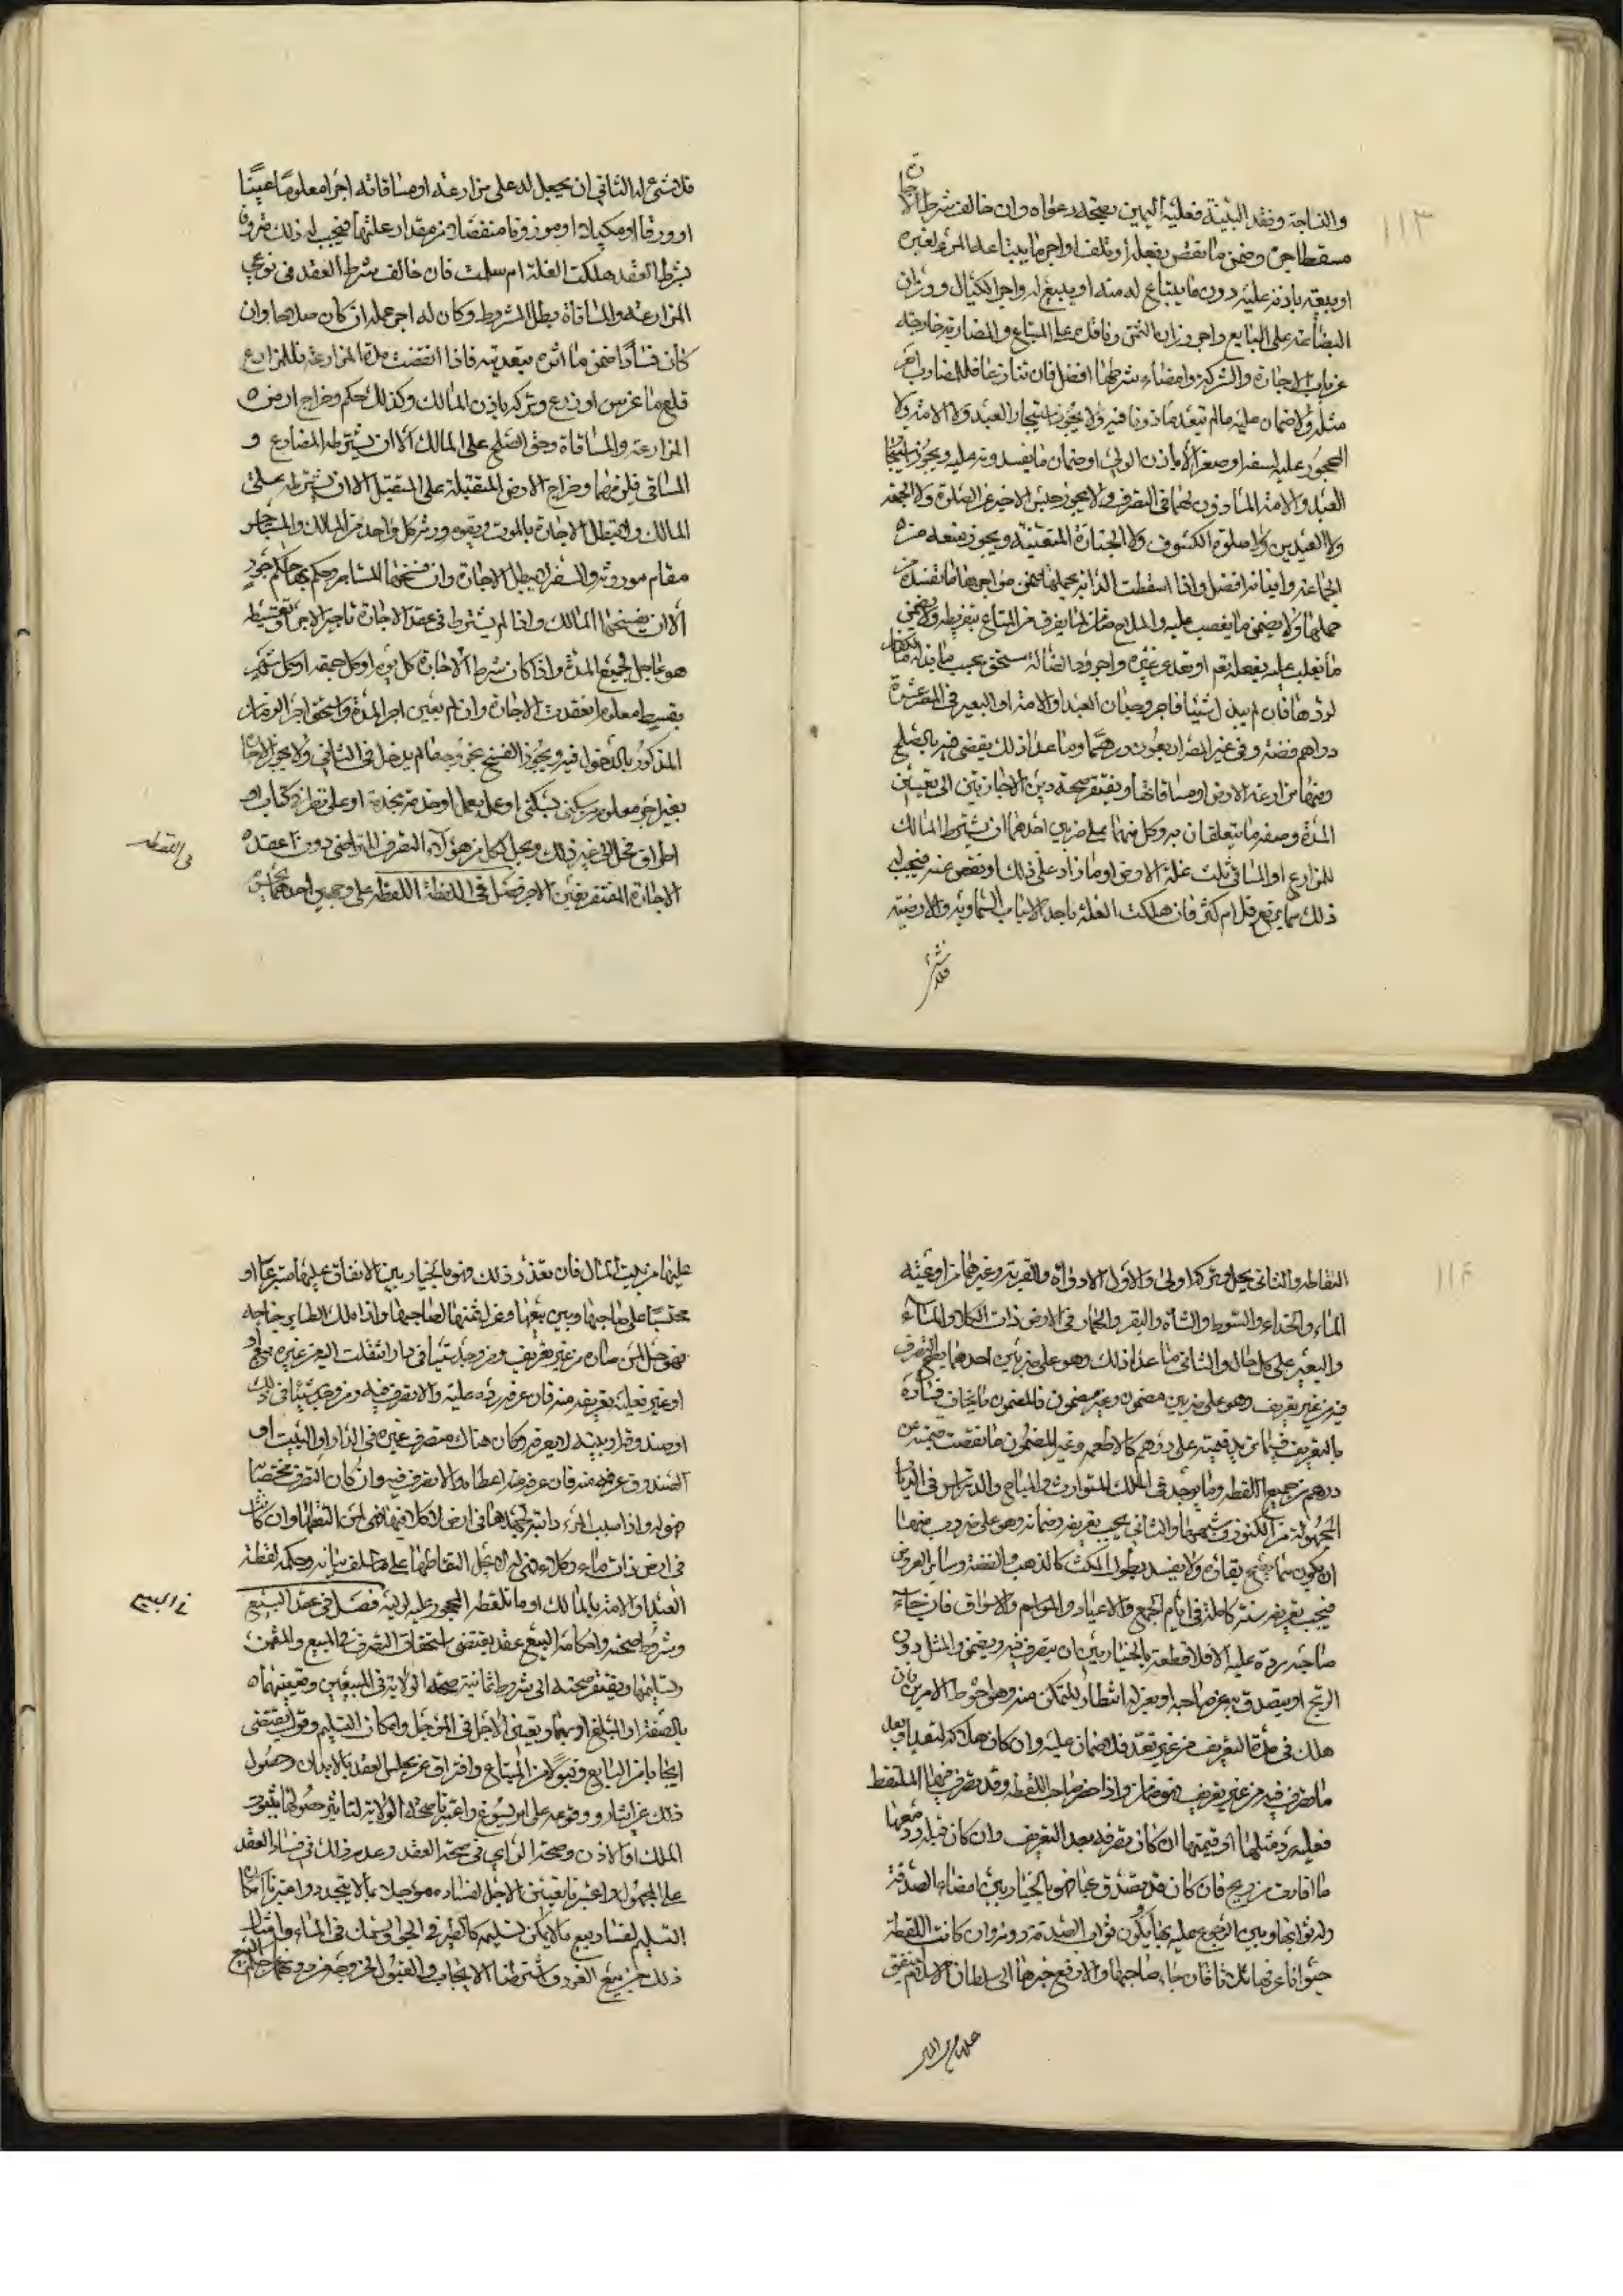 ١١٣
والناجة وفقد البينة فعليه اليمين بصحة دعواه وان خالف شرط الاجارة
مسقط اجره وضمن ما نقص بفعله او تلف واجر ما يبتاعه المرء لغيره
او يبيعه باذنه عليه دون ما يبتاع له منه او يبيع له واجر الكيال ووزان
البضاعة على البايع واجر وزان الثمن وناقده على المبتاع والمضاربة خارجة
عن باب الاجارة والشركة وامضاء شرطها افضل فان تنازعا فللمضارب اجر
مثله ولا ضمان عليه مالم يتعد ماذونا فيه ولا يجوز استيجار العبد ولا الامة ولا
المحجور عليه لسفه او صغر الا باذن الولي او ضمان ما يفسدونه عليه ويجوز استيجار
العبد والامة الماذون لهما في التصرف ولا يجوز حبس الاجير عن الصلوة ولا الجمعة
ولا العيدين ولا صلوة الكسوف ولا الجنازة المتعينة ويجوز منعه من
الجماعة وايذانه افضل واذا اسقطت الدابة بحملها ضمن مواجرها ما تفسده من
حملها ولا يضمن ما يغصب عليه والملاح ضامن لما يفرق من المتاع بتفريطه ولا يضمن
ما يغلب عليه بفعله تعالى او تعدي غيره واجر رد الضالة مستحق بحسب ما بذله مالكها
لردها فان لم يبذل شيئا فاجر وجدان العبد او الامة او البعير في المصر عشرة
دراهم فضة وفي غير المصر اربعون درهما وما عدا ذلك يقضى فيه بالصلح
ومنها مزارعة الارض او مساقاتها ويفتقر صحة دين الاجارتين الى تعيين
المدة وصفة ما يتعلقان به وكل منهما على ضربين احدهما ان يشترط المالك
للمزارع او المساقي ثلث غلة الارض او ما زاد على ذلك او نقص عنه فيجب له
ذلك مما يرتفع قل ام كثر فان هلكت الغلة باحد الاسباب السماوية والارضية
فلا شئ
فلا شئ له الثاني ان يجعل له على مزارعته او مساقاته اجرا معلوما عينا
او ورقا او مكيلا او موزونا منفصلا من مقدار غلتها فيجب له ذلك متى وفا
بشرط العقد هلكت الغلة ام سلمت فان خالف شرط العقد في نوعي
المزارعة والمساقاة بطل المشروط وكان له اجر عمله ان كان صلاحا وان
كان فسادا ضمن ما اثره بتعديه فاذا انقضت مدة المزارعة فللمزارع
قلع ما غرس او زرع وتركه باذن المالك وكذلك حكم وخراج ارض
المزارعة والمساقاة وحق الصلح على المالك الا ان يشترطه المضارع و
المساقي فيلزمهما وخراج الارض المتقبلة على المتقبل الا ان يشترطه على
المالك ولا تبطل الاجارة بالموت ويقوم ورثة كل واحد من المالك والمستاجر
مقام موروثه والسفر لا يبطل الاجارة وان فسخها المستاجر وحكم بها حاكم جور
الا ان يفسخها المالك واذا لم يشترط في عقد الاجارة تاجير الاجر وتقسيطه
هو عاجل لجميع المدة واذا كان شرط الاجارة كل يوم او كل جمعة او كل شهر
بقسط معلوم انعقدت الاجارة وان لم يعين اجر المدة واستحق اجر الزمان
المذكور بالدخول فيه ويجوز الفسخ بخروجه مالم يدخل في الثاني ولا يجوز الاجارة
بغير اجر معلوم من سكنى بسكنى او عمل بعمل او خدمة بخدمة او على نظر في كتاب او
اطراق فحل الى غير ذلك ويحل كل من هؤلاء التصرف للتراضي دون عقد
الاجارة المفتقر تعيين الاجر فصل في اللقطة اللقطة على وجهين احدهما يحل
في اللقطه
١١٤
التقاطه والثاني يحل وتركه اولى والاول الاداوة والقربة وغيرهما من اوعية
الماء والحذاء والسوط والشاة والبقر والحمار في الارض ذات الكلاء والماء
والبعير على كل حال والثاني ما عدا ذلك وهو على ضربين احدهما يصح التصرف
فيه من غير تعريف وهو على ضربين مضمون وغير مضمون فالمضمون ما يخاف فساده
بالتعريف فيما تزيد قيمته على درهم كالاطعمة وغير المضمون ما نقصت قيمته عن
درهم من جميع اللقطة وما يوجد في الملك المتوارث والمباح والدارس في الديار
المجهولة من الكنوز وشبهها والثاني يجب تعريفه وضمانه وهو على ضروب منها
ان يكون مما يصح بقاؤه ولا يفسد بطول المكث كالذهب والفضة وساير العروض
فيجب تعريفه سنة كاملة في ايام الجمع والاعياد والمواسم والاسواق فان جاء
صاحبه رده عليه والا فلاقطه بالخيار بين ان يتصرف فيه ويضمن المثل دون
الربح او يتصدق به عن صاحبه او يعزله انتظارا للتمكن منه وهو احوط الامرين فان
هلك في مدة التعريف من غير تعد فلا ضمان عليه وان كان هلاكه لتعد او بعد
ما تصرف فيه من غير تعريف فهو ضامن واذا حضر صاحب اللقطة وقد تصرف فيها الملتقط
فعليه رد مثلها او قيمتها ان كان تصرفه بعد التعريف وان كان قبله رد معها
ما افادت من ربح فان كان قد تصدق بها فهو بالخيار بين امضاء الصدقة
وله ثوابها وبين الرجوع عليه بها ويكون ثواب الصدقة دونه وان كانت اللقطة
حيوانا عرفها ثلاثا فان جاء صاحبها والا رفع خبرها الى سلطان الاسلام لينفق
عليها من بيت المال فان تعذر ذلك فهو بالخيار بين الانفاق عليها متبرعا او
محتسبا على صاحبها وبين بيعها وعزل ثمنها لصاحبها واذا ملك الطاير جناحه
فهو حل لمن صاده من غير تعريف ومن وجد شيئا في دار انتقلت اليه من غيره ببيع او
او غيره فعليه تعريفه منه فان عرفه رده عليه والا تصرف فيه ومن وجد شيئا في ذلك
او صندوقه او بيته لا يعرفه وكان هناك متصرف غيره في الدار او البيت او
الصندوق عرفه منه فان عرفه اعطاه والا تصرف فيه وان كان التصرف مختصا به
فهو له واذا سيب المرء دابته لجهدها في ارض لا كلاء فيها فهي لمن التقطها وان كانت
في ارض ذات ماء وكلاء فهي له لا يحل التقاطها على ما سلف بيانه وحكم لقطة
العبد والامة بالمالك او ما تلتقطه المحجور عليه لوليه فصل في عقد البيع
في البيع
وشروط صحته واحكامه البيع عقد يقتضي استحقاق التصرف في المبيع والثمن
وتسليمهما ويفتقر صحته الى شروط ثمانية صحة الولاية في المبيعين وتعيينهما
بالصفة او المبلغ او بهما وتعيين الاجل في المؤجل وامكان التسليم وقول يقتضي
ايجابا من البايع وقبولا من المبتاع وافتراق عن مجلس العقد بالابدان وحصول
ذلك عن ايثار ووقوعه على امر يسوغ واعتبرنا صحة الولاية لتاثير حصولها بثبوت
الملك او الاذن وصحة الراي في صحة العقد وعدم ذلك في فساد العقد
على المجهول واعتبرنا تعيين الاجل لفساده مؤجلا بما لا يتحدد واعتبرنا امكان
التسليم لفساد بيع مالا يمكن تسليمه كالطير في الجو والسمك في الماء وامثال
ذلك من بيع الغرر واشترطنا الايجاب والقبول لخروجه من دونهما عن حكم البيع